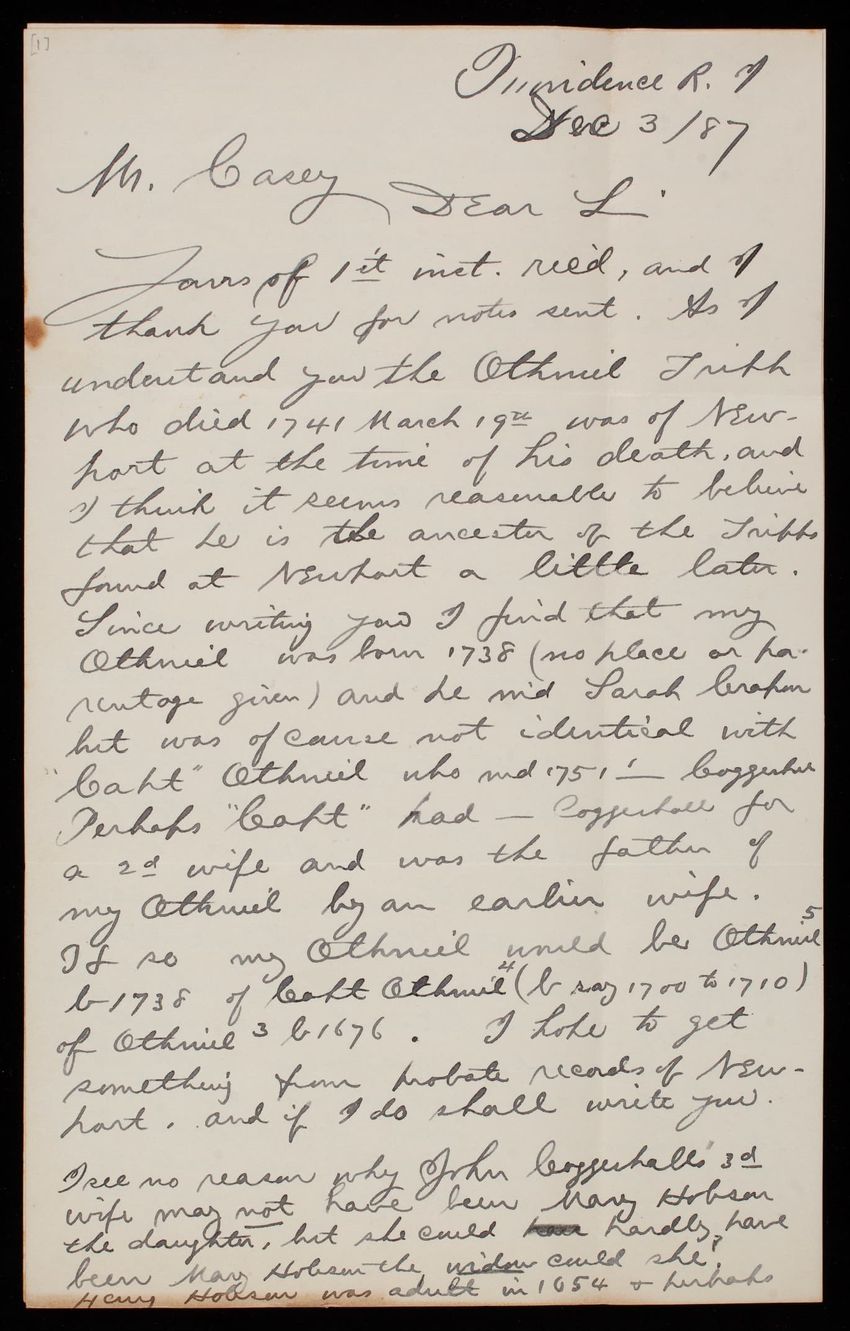 [1]
Providence R. I
Dec 3/87
Mr. Casey
Dear Sir
Yours of 1st inst. rec'd, and I
thank you for notes sent. As I
understand you the Othniel Tripp
who died 1741 March 19th was of New-
port at the time of his death, and
I think it seems reasonable to believe
that he is the ancestor of the Tripps
found at Newport a little later.
Since writing you I find that my
Othniel was born 1738 (no place or pa-
rentage given) and he m'd Sarah
but was of course not identical with
"Capt" Othniel who md 1751 — Coggeshall
Perhaps "Capt" had — Coggeshall for
a 2d wife and was the father of
my Othniel by an earlier wife.
If so my Othniel would be Othniel 5
b 1738 of Capt Othniel 4 (b say 1700 to 1710)
of Othniel 3 b 1676. I hope to get
something from probate records of New-
port, and if I do shall write you.
I see no reason why John Coggeshalls 3d
wife may not have been Mary Hobson
the daughter, but she could hardly have
been Mary Hobson the widow could she?
Henry Hobson was adult in 1654 & perhaps